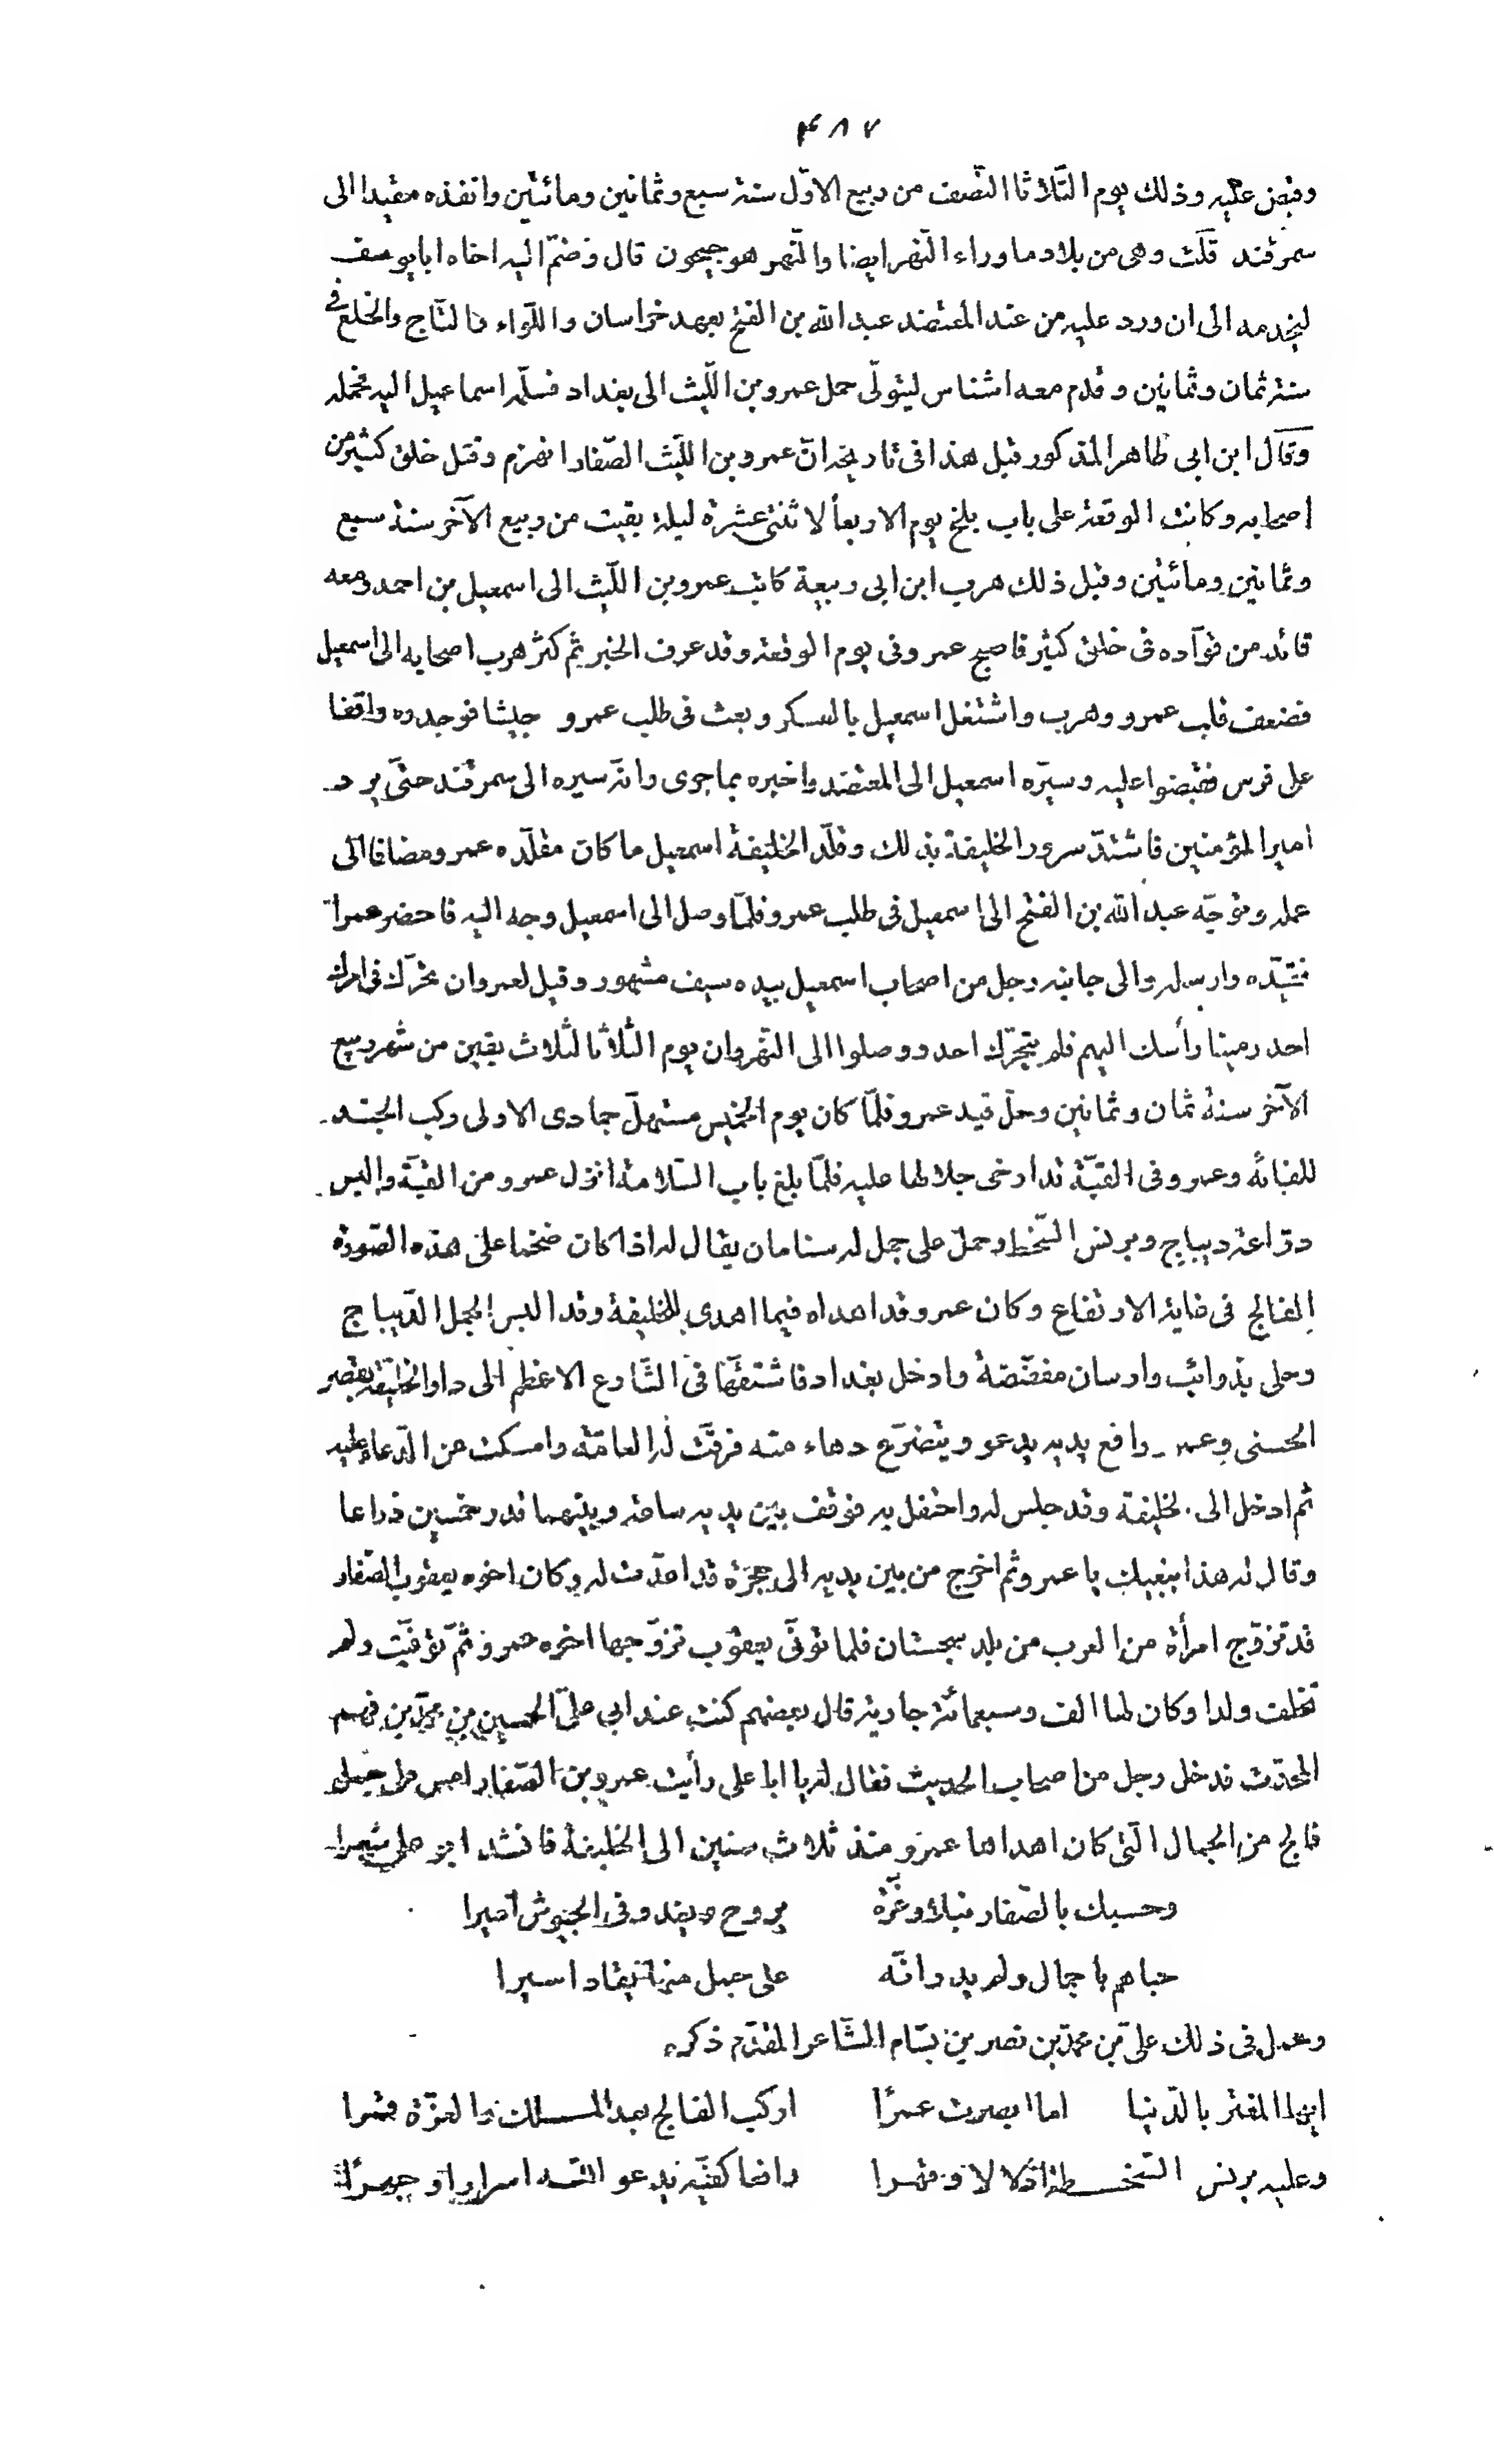 ٤٨٧
وقبض عليه وذلك يوم الثلاثا النصف من ربيع الاول سنة سبع وثمانين ومائتين وانفذه مقيدا الى
سمرقند قلت وهى من بلاد ما وراء النهر ايضا والنهر هو جيحون قال وضم اليه اخاه ابا يوسف
ليخدمه الى ان ورد عليه من عند المعتضد عبد الله بن الفتح بعهد خراسان واللواء والتاج والخلع فى
سنة ثمان وثمانين وقدم معه اشناس ليتولى حمل عمرو بن الليث الى بغداد فسلمه اسماعيل اليه فحمله
وقال ابن ابى طاهر المذكور قبل هذا فى تاريخه ان عمرو بن الليث الصفار انهزم وقتل خلق كثير من
اصحابه وكانت الوقعة على باب بلخ يوم الاربعا لاثنتى عشرة ليلة بقيت من ربيع الآخر سنة سبع
وثمانين ومائتين وقبل ذلك هرب ابن ابى ربيعة كاتب عمرو بن الليث الى اسمعيل بن احمد ومعه
قائد من قواده فى خلق كثير فاصبح عمرو فى يوم الوقعة وقد عرف الخبر ثم كثر هرب اصحابه الى اسمعيل
فضعف قلب عمرو وهرب واشتغل اسمعيل بالعسكر وبعث فى طلب عمرو جيشا فوجدوه واقفا
على فرس فقبضوا عليه وسيره اسمعيل الى المعتضد واخبره بما جرى وانه سيره الى سمرقند حتى يرد
امير المؤمنين فاشتد سرور الخليفة بذلك وقلد الخليفة اسمعيل ما كان مقلده عمرو مضافا الى
عمله وتوجه عبد الله بن الفتح الى اسمعيل فى طلب عمرو فلما وصل الى اسمعيل وجه اليه فاحضر عمرا
فقيده وارسله والى جانبه رجل من اصحاب اسمعيل بيده سيف مشهور وقيل لعمرو ان تحرك فى امرك
احد رمينا رأسك اليهم فلم يتحرك احد ووصلوا الى النهروان يوم الثلاثا لثلاث بقين من شهر ربيع
الآخر سنة ثمان وثمانين وحل قيد عمرو فلما كان يوم الخميس مستهل جمادى الاولى ركب الجند
للقائه وعمرو فى القبة قد ارخى جلالها عليه فلما بلغ باب السلامة انزل عمرو من القبة والبس
دراعة ديباج وبرنس السخط وحمل على جمل له سنامان يقال له اذا كان ضخما على هذه الصورة
الفالج فى غاية الارتفاع وكان عمرو قد اهداه فيما اهدى للخليفة وقد البس الجمل الديباج
وحلى بذوائب وارسان مفضضة وادخل بغداد فاشتقها فى الشارع الاعظم الى دار الخليفة بقصر
الحسنى وعمرو رافع يديه يدعو ويتضرع دهاء منه فرقت له العامة وامسكت عن الدعاء عليه
ثم ادخل الى الخليفة وقد جلس له واحتفل به فوقف بين يديه ساعة وبينهما قدر خمسين ذراعا
وقال له هذا ببغيك يا عمرو ثم اخرج من بين يديه الى حجرة قد اعدت له وكان اخوه يعقوب الصفار
قد تزوج امرأة من العرب من بلد سجستان فلما توفى يعقوب تزوجها اخوه عمرو ثم توفيت ولم
تخلف ولدا وكان لها الف وسبعمائة جارية قال بعضهم كنت عند ابى على الحسين بن محمد بن فهم
المحدث فدخل رجل من اصحاب الحديث فقال له يا ابا على رأيت عمرو بن الصفار امس على جمل
فالج من الجمال التى كان اهداها عمرو منذ ثلاث سنين الى الخليفة فانشد ابو على شعرا
وحسبك بالصفار نبلا وعزة يروح ويغدو فى الجيوش اميرا
حباهم باجمال ولم يدر انه على جمل منها يقاد اسيرا
وعمل فى ذلك على بن محمد بن نصر بن بسام الشاعر المقدم ذكره
ايها المغتر بالدنيا اما ابصرت عمرًا اركب الفالج بعد الملك والعزة قسرا
وعليه برنس السخطة اذلالا وقهرا رافعا كفيه يدعو الله اسرارا وجهرًا